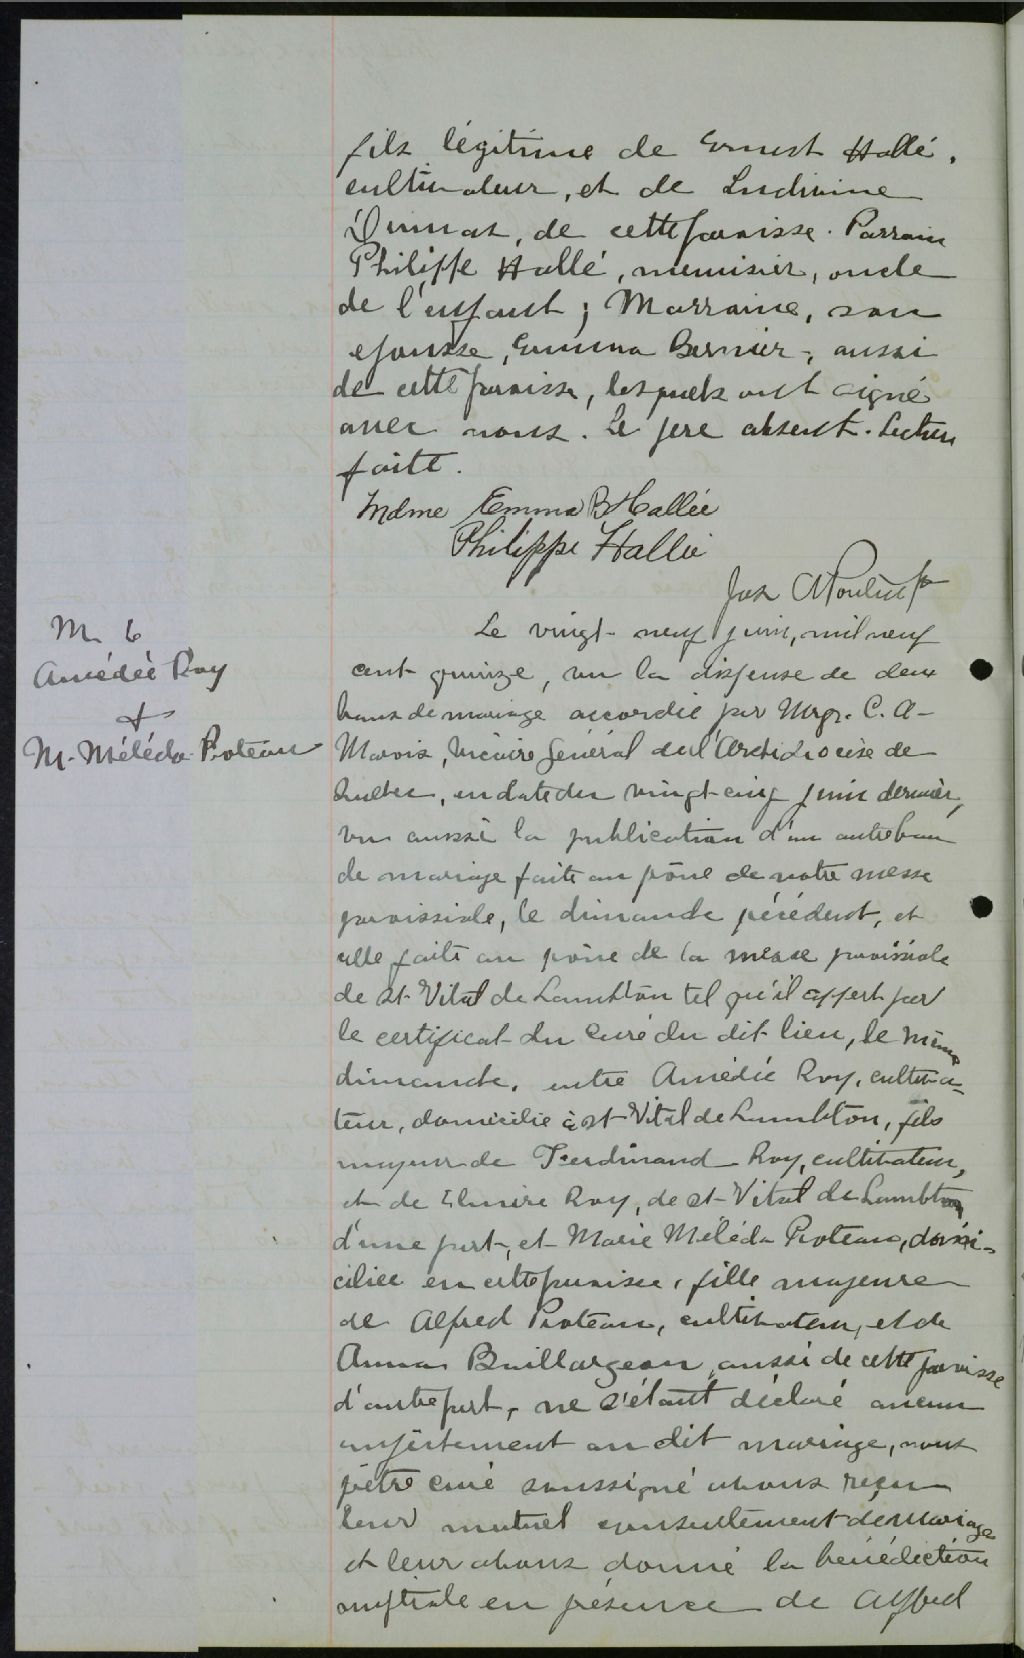 fils légitime de Ernest Hallé,
cultivateur, et de Ludivine
de cette paroisse. Parrain
Philippe Hallé, menuisier, oncle
de l'enfant ; Marraine, son
epousse, Emma Bernier, aussi
de cette paroisse, lesquels ont signé
avec nous. Le pere absent. Lecture
faite.
Mdme Emma B Hallée
Philippe Hallée
Jos A Poulin ptr
Le vingt-neuf juin, mil neuf
cent quinze, vu la dispense de deux
bans de mariage accordée par Mgr. C. A-
Marois, Vicaire Général de l'Archidiocèse de
Québec, en date du vingt-cinq juin dernier,
vu aussi la publication d'un autre ban
de mariage faite au prône de notre messe
paroissiale, le dimanche précédent, et
celle faite au prône de la messe paroissiale
de St-Vital de Lambton tel qu'il appert par
le certificat du Curé du dit lieu, le même
dimanche, entre Amédée Roy, cultiva-
teur, domicilié à St-Vital de Lambton, fils
majeur de Ferdinand Roy, cultivateur,
et de Elmire Roy, de St-Vital de Lambton
d'une part, et Marie Méléda Proteau, domi-
ciliée en cette paroisse, fille majeure
de Alfred Proteau, cultivateur, et de
Anna Baillargeon, aussi de cette paroisse
d'autre part, ne s'étant déclaré aucun
empêchement au dit mariage, nous
prêtre curé soussigné avons reçu
leur mutuel consentement de mariage
et leur avons donné la bénédiction
nuptiale en présence de Alfred
M. 6
Amédée Roy
&
M. Méléda Proteau